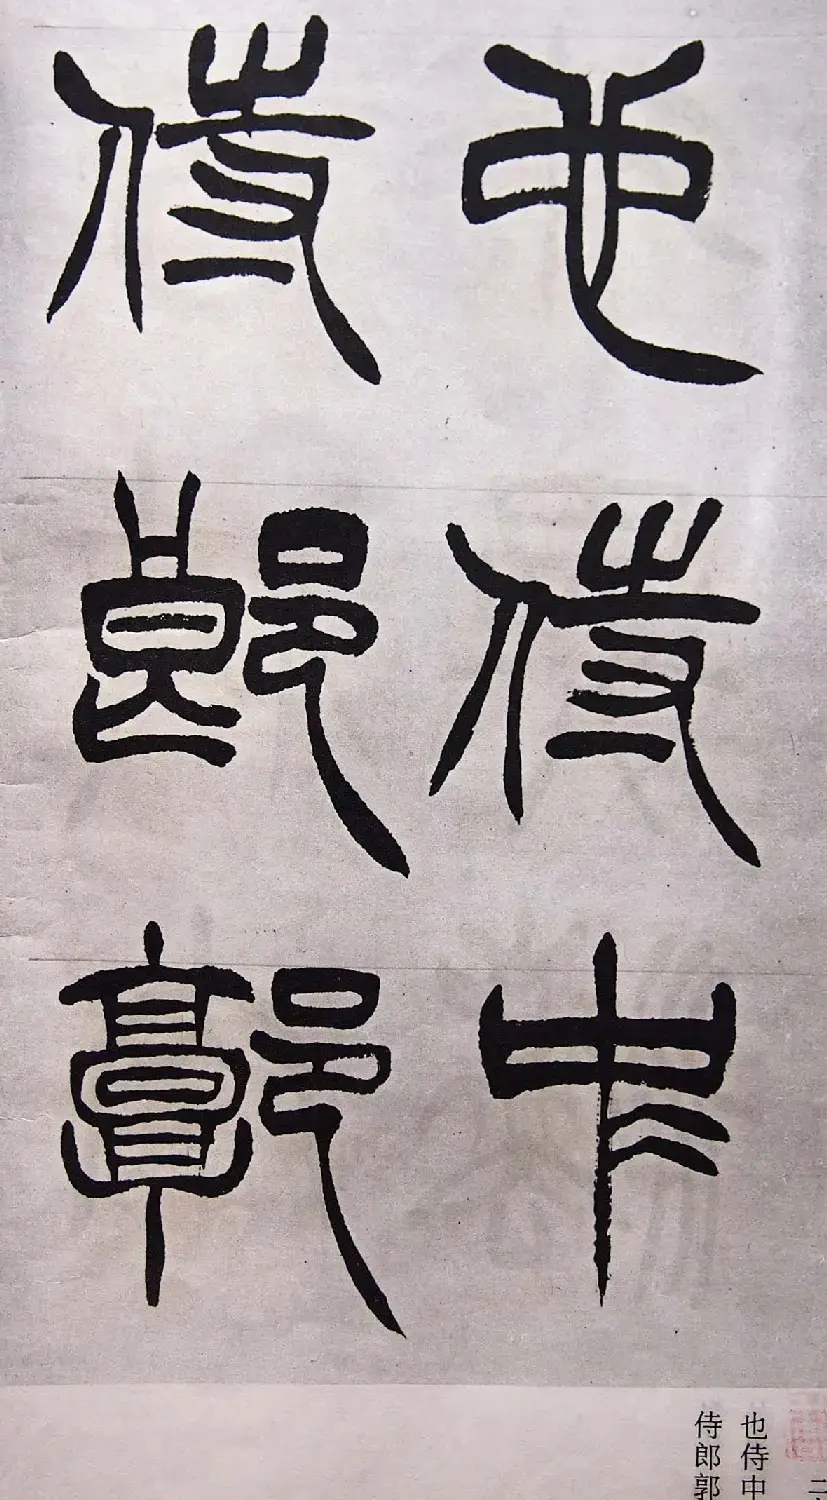 也侍中
侍郎郭
也侍中
侍郎郭